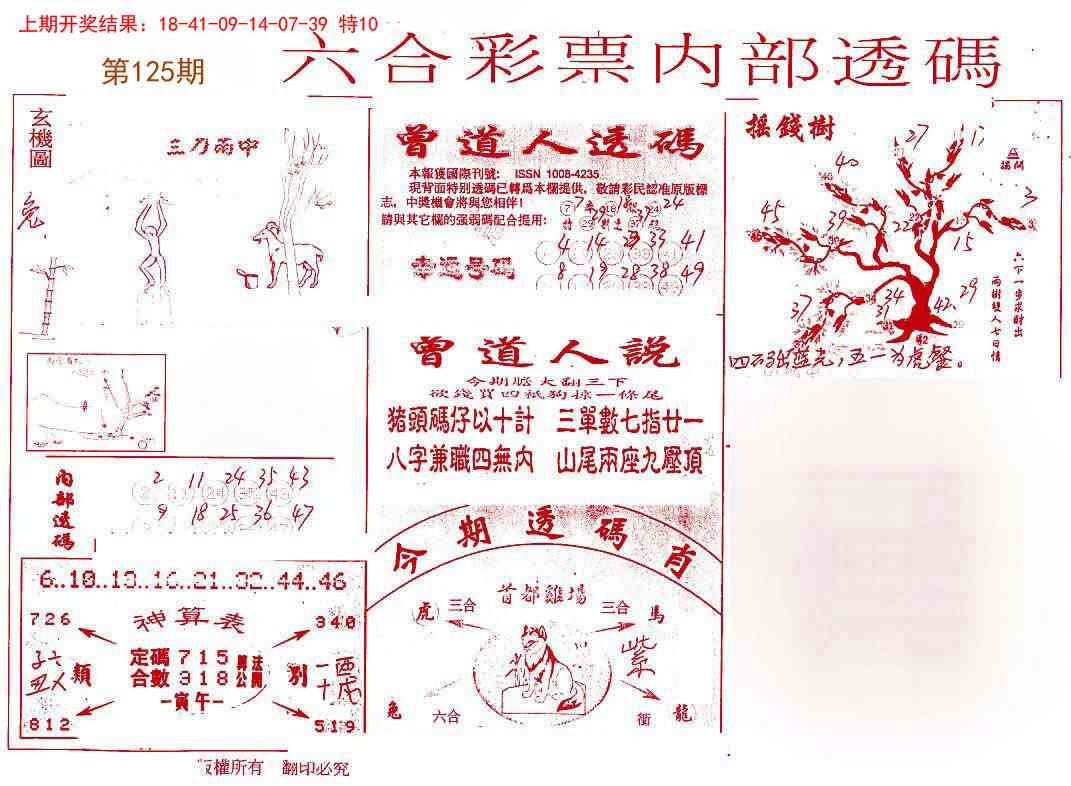 上期开奖结果：18-41-09-14-07-39 特10
第125期
六合彩票内部透碼
玄機圖
三刀兩中
兔
曾道人透碼
本報獲國際刊號: ISSN 1008-4235
現背面特别透碼已轉爲本欄提供，敬請彩民認准原版標
志，中獎機會將與您相伴！
請與其它欄的强弱碼配合提用:
幸運号码
4 14 23 33 41
8 19 28 38 49
摇錢樹
27
40
3
45 39 22 15
37 34 31 42 29
六下一步求财出
兩樹雙人七日情
曾道人説
今期膽大翻三下
欲錢買四祇狗採一條尾
猪頭碼仔以十計 三單數七指廿一
八字兼職四無内 山尾兩座九壓頂
内部透碼
2 11 24 35 43
9 18 25 36 47
6..10..13..16..21..32..44..46
神算表
726
340
定碼715
合數318
算法公開
-寅午-
類
别
812
519
今期透碼肖
首都雞場
虎 三合
三合 馬
紫
兔 六合
衝 龍
版權所有 翻印必究